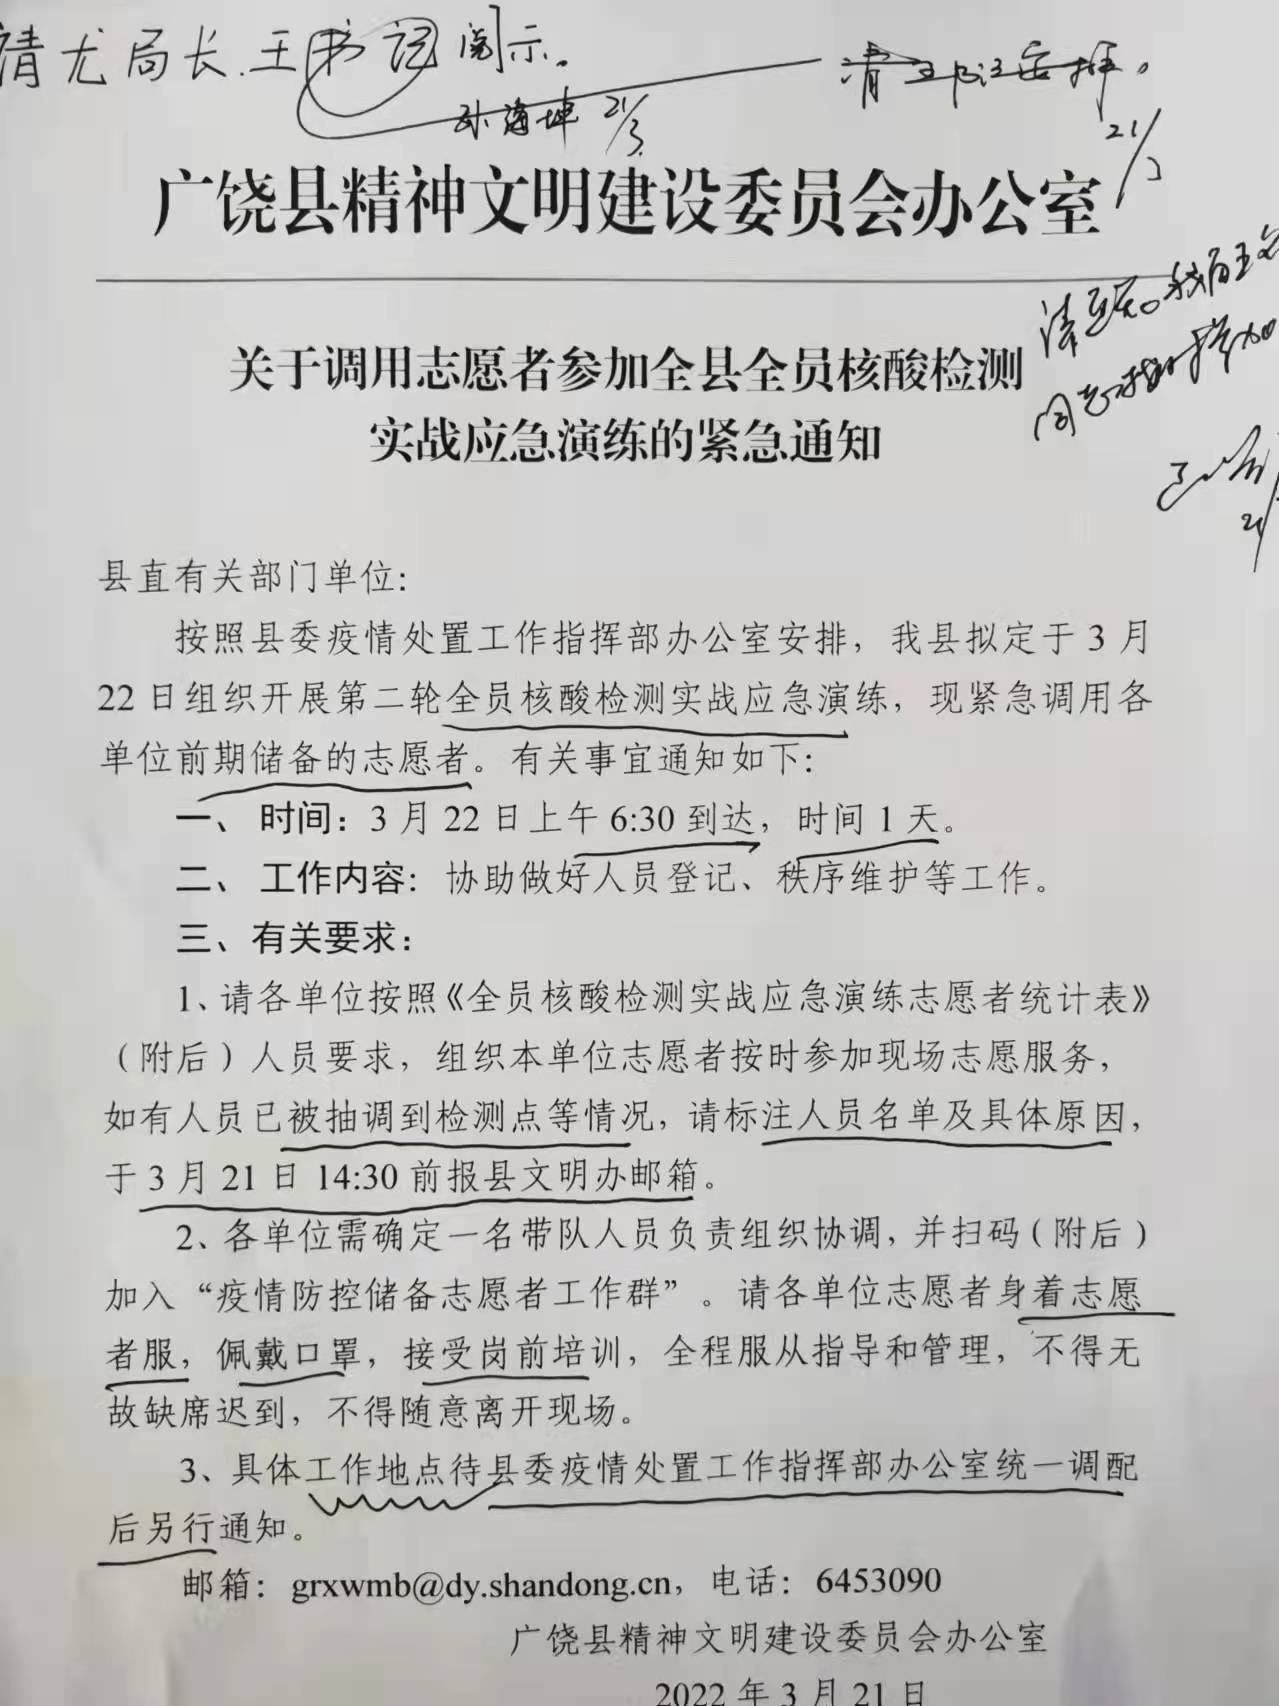 请尤局长.王书记阅示。
孙海坤 21/3
21/3
广饶县精神文明建设委员会办公室
关于调用志愿者参加全县全员核酸检测
实战应急演练的紧急通知
县直有关部门单位：
按照县委疫情处置工作指挥部办公室安排，我县拟定于 3 月
22 日组织开展第二轮全员核酸检测实战应急演练，现紧急调用各
单位前期储备的志愿者。有关事宜通知如下：
一、 时间：3 月 22 日上午 6:30 到达，时间 1 天。
二、 工作内容：协助做好人员登记、秩序维护等工作。
三、有关要求：
1、请各单位按照《全员核酸检测实战应急演练志愿者统计表》
（附后）人员要求，组织本单位志愿者按时参加现场志愿服务，
如有人员已被抽调到检测点等情况，请标注人员名单及具体原因，
于 3 月 21 日 14:30 前报县文明办邮箱。
2、各单位需确定一名带队人员负责组织协调，并扫码（附后）
加入“疫情防控储备志愿者工作群”。请各单位志愿者身着志愿
者服，佩戴口罩，接受岗前培训，全程服从指导和管理，不得无
故缺席迟到，不得随意离开现场。
3、具体工作地点待县委疫情处置工作指挥部办公室统一调配
后另行通知。
邮箱：grxwmb@dy.shandong.cn，电话：6453090
广饶县精神文明建设委员会办公室
2022 年 3 月 21 日